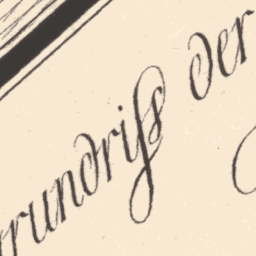 rundriſs der